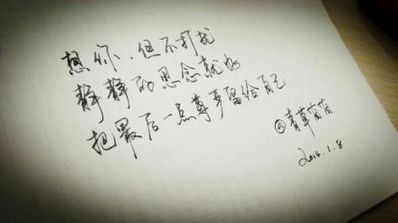 想你,但不打扰
静静的思念就好
把最后一点尊严留给自己
@青草茵茵
2016.1.8